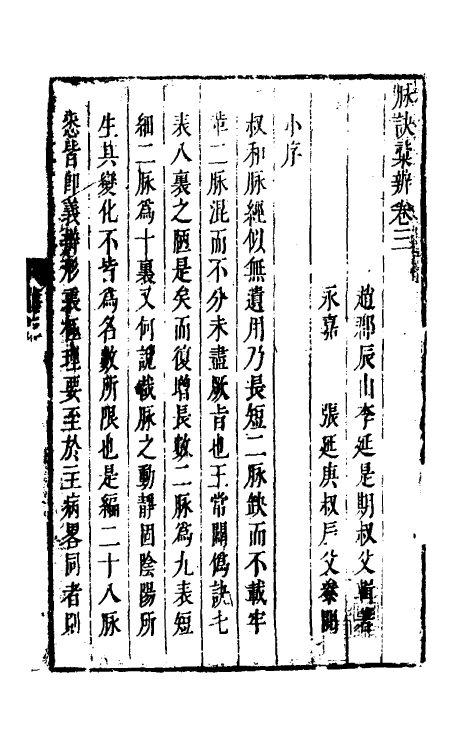 脉訣彚辨卷三
趙郡辰山李延是期叔父輯著
永嘉　張延庚叔辰父叅閱
小序
叔和脉經似無遺用乃長短二脉缺而不載牢
革二脉混而不分未盡厥旨也王常闢僞訣七
表八裏之陋是矣而復增長數二脉爲九表短
細二脉爲十裏又何說哉脉之動靜固陰陽所
生其變化不皆爲名數所限也是編二十八脉
悉皆卽義辨形表極理要至於主病畧同者則